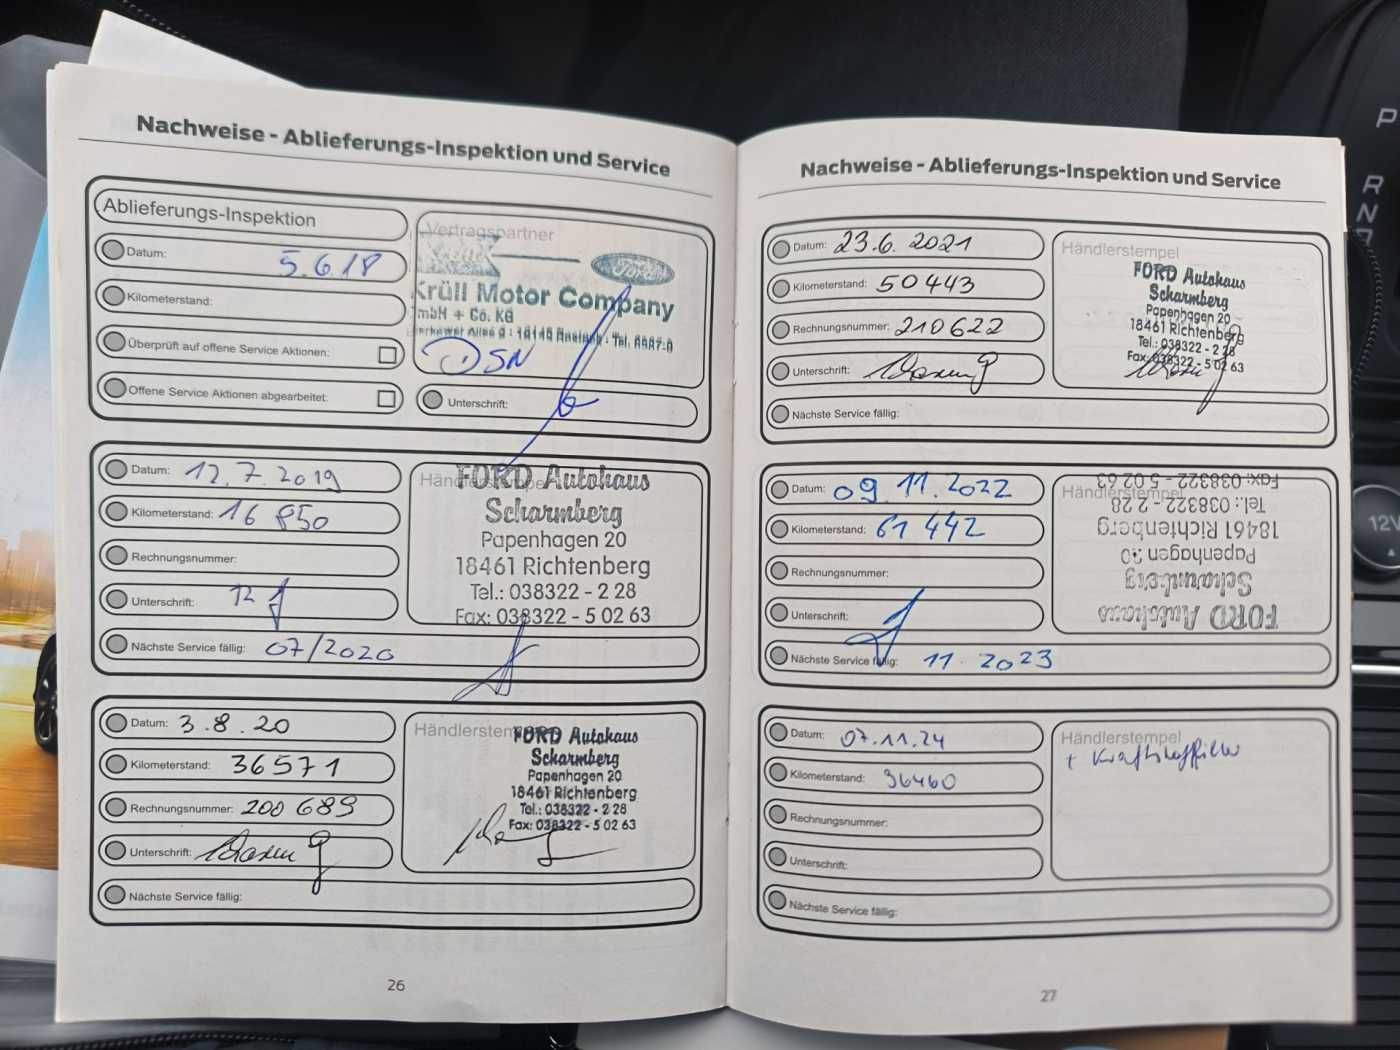 Nachweise - Ablieferungs-Inspektion und Service
Ablieferungs-Inspektion
Datum: 5.6.18
Kilometerstand:
Überprüft auf offene Service Aktionen:
Offene Service Aktionen abgearbeitet:
Vertragspartner
Ford
Krüll Motor Company
GmbH + Co. KG
DSN
Unterschrift:
Datum: 12.7.2019
Kilometerstand: 16 850
Rechnungsnummer:
Unterschrift:
Nächste Service fällig: 07/2020
Händlerstempel
FORD Autohaus
Scharmberg
Papenhagen 20
18461 Richtenberg
Tel.: 038322 - 2 28
Fax: 038322 - 5 02 63
Datum: 3.8.20
Kilometerstand: 36571
Rechnungsnummer: 200 689
Unterschrift:
Nächste Service fällig:
Händlerstempel
FORD Autohaus
Scharmberg
Papenhagen 20
18461 Richtenberg
Tel.: 038322 - 2 28
Fax: 038322 - 5 02 63
26
Nachweise - Ablieferungs-Inspektion und Service
Datum: 23.6.2021
Kilometerstand: 50443
Rechnungsnummer: 210622
Unterschrift:
Nächste Service fällig:
Händlerstempel
FORD Autohaus
Scharmberg
Papenhagen 20
18461 Richtenberg
Tel.: 038322 - 2 28
Fax: 038322 - 5 02 63
Datum: 09.11.2022
Kilometerstand: 61 442
Rechnungsnummer:
Unterschrift:
Nächste Service fällig: 11.2023
Händlerstempel
FORD Autohaus
Scharmberg
Papenhagen 20
18461 Richtenberg
Tel.: 038322 - 2 28
Fax: 038322 - 5 02 63
Datum: 07.11.24
Kilometerstand: 96460
Rechnungsnummer:
Unterschrift:
Nächste Service fällig:
Händlerstempel
+ Kraftstofffilter
27
P
R
N
12V